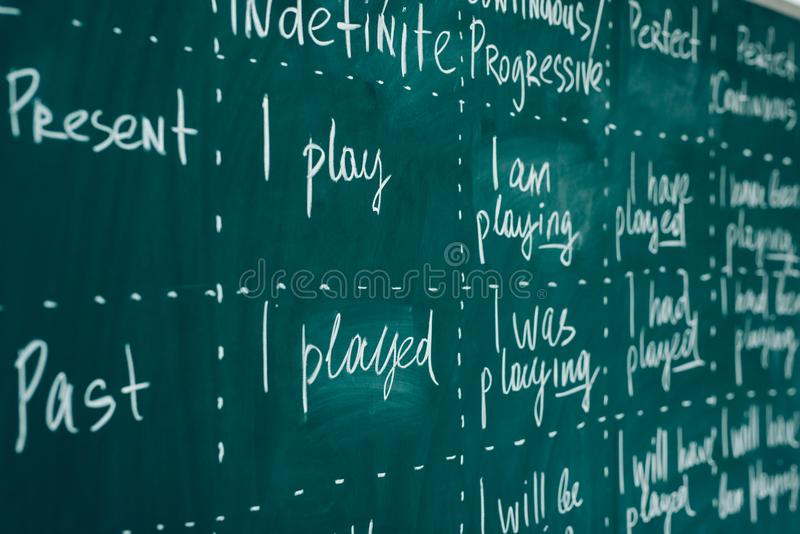 Indefinite
Continuous/
Progressive
Perfect
Perfect
Continuous
Present
I play
I am
playing
I have
played
I have been
playing
Past
I played
I was
playing
I had
played
I had been
playing
I will be
I will have
played
I will have
been playing
dreamstime